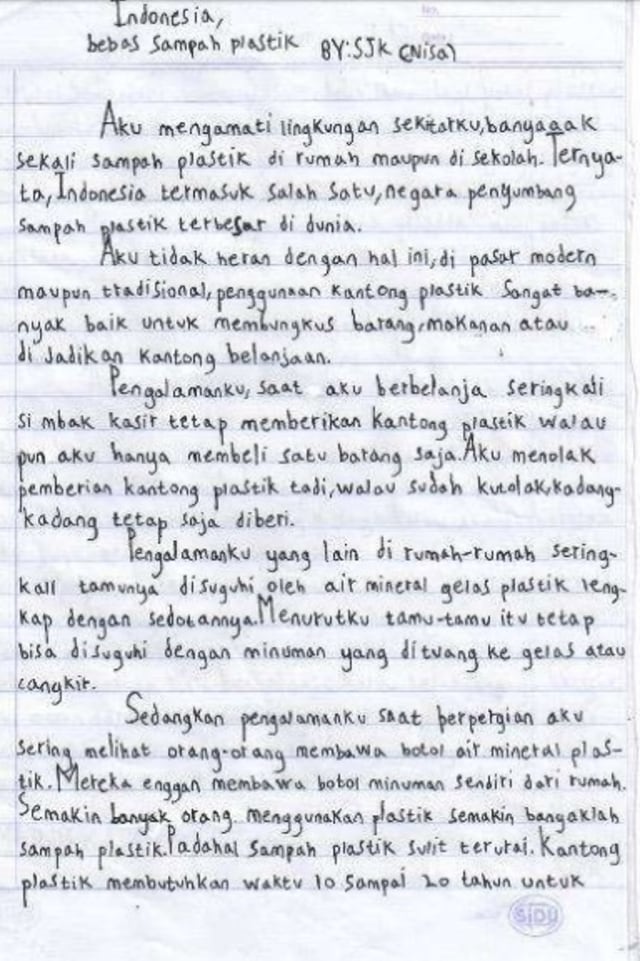 Indonesia,
bebas sampah plastik BY:SJK (Nisa)
Aku mengamati lingkungan sekitarku, banyaaak
sekali sampah plastik di rumah maupun di sekolah. Ternya-
ta, Indonesia termasuk salah satu, negara penyumbang
sampah plastik terbesar di dunia.
Aku tidak heran dengan hal ini, di pasar modern
maupun tradisional, penggunaan kantong plastik sangat ba-
nyak baik untuk membungkus barang, makanan atau
di jadikan kantong belanjaan.
Pengalamanku, saat aku berbelanja seringkali
si mbak kasir tetap memberikan kantong plastik walau
pun aku hanya membeli satu barang saja. Aku menolak
pemberian kantong plastik tadi, walau sudah kutolak, kadang-
kadang tetap saja diberi.
Pengalamanku yang lain di rumah-rumah sering-
kali tamunya disuguhi oleh air mineral gelas plastik leng-
kap dengan sedotannya. Menurutku tamu-tamu itu tetap
bisa disuguhi dengan minuman yang dituang ke gelas atau
cangkir.
Sedangkan pengalamanku saat berpergian aku
sering melihat orang-orang membawa botol air mineral plas-
tik. Mereka enggan membawa botol minuman sendiri dari rumah.
Semakin banyak orang menggunakan plastik semakin banyaklah
sampah plastik. Padahal sampah plastik sulit terurai. Kantong
plastik membutuhkan waktu 10 sampai 20 tahun untuk
SIDU